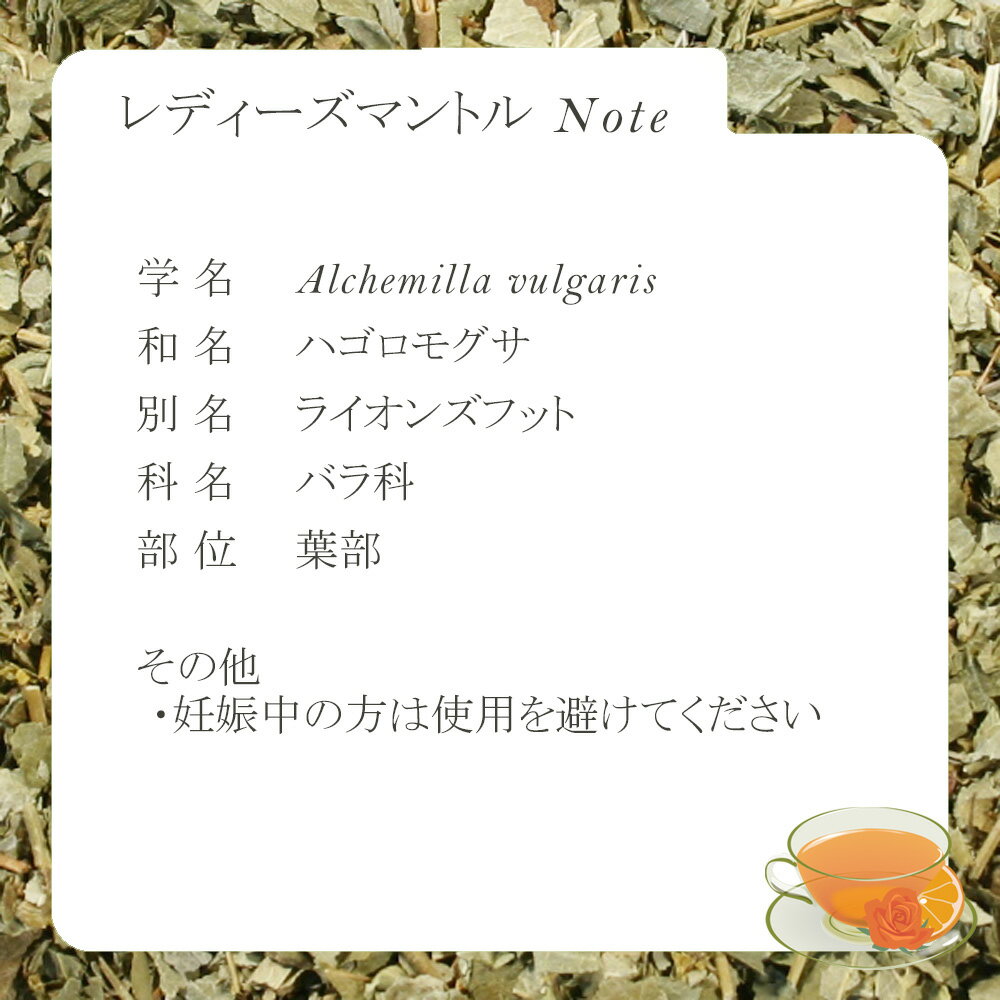 レディーズマントル Note
学名 Alchemilla vulgaris
和名 ハゴロモグサ
別名 ライオンズフット
科名 バラ科
部位 葉部
その他
・妊娠中の方は使用を避けてください